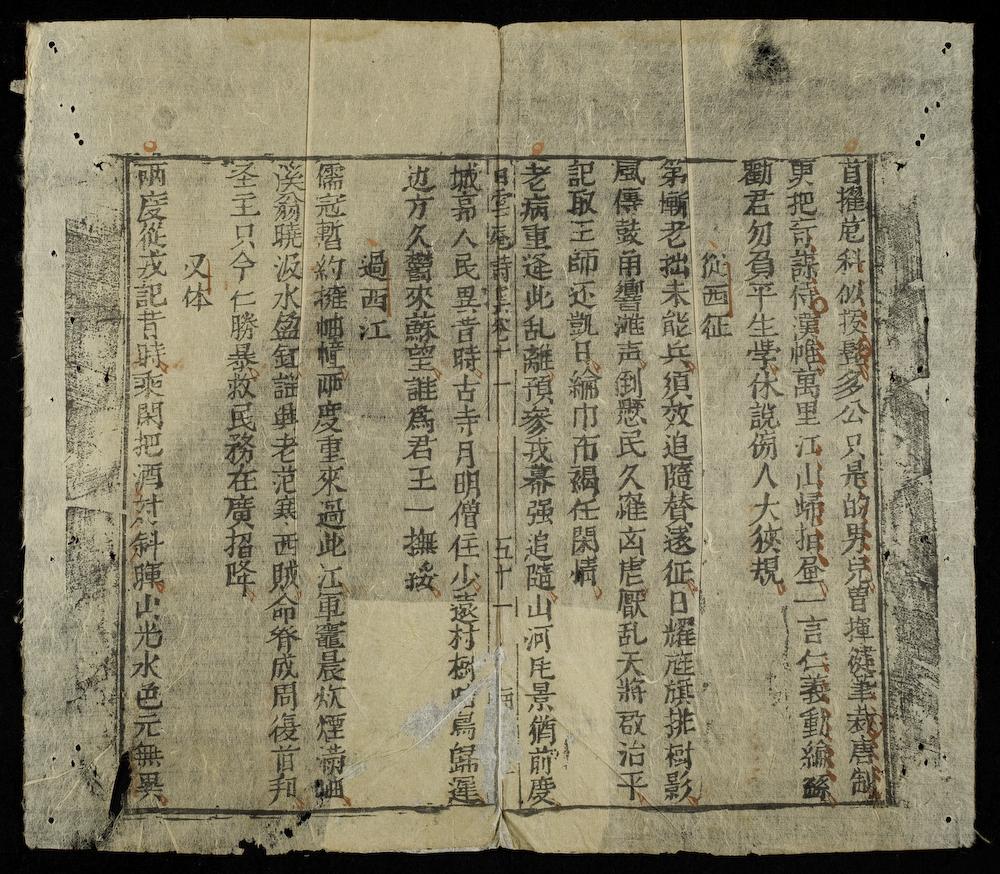 首擢巍科似按鬚多公只是的男兒曽揮健筆裁唐制
更把訏謨侍漢帷萬里江山歸拍屋一言仁義動編絲
勸君勿負平生學休說傍人大狹規
從西征
第慚老拙未能兵須效追隨替遠征日耀旌旗排樹影
風傳鼓角響灘声倒懸民久罹凶虐厭乱天將啟治平
記取王師还凱日綸巾布褐任閑情
老病重逢此乱離預參戎幕强追隨山河尾景猶前度
白雲庵詩集卷十 五十一
城郭人民異昔時古寺月明僧住少遠村樹暗鳥歸遲
边方久鬱來蘇望誰爲君王一撫綏
過西江
儒冠暫約擁岫幢両度重來過此江軍竈晨炊煙滿
溪翁曉汲水盈缸誰與老范寒西賊命脊成周復前和
圣主只今仁勝暴救民務在廣招降
又体
兩度從戎記昔時乘閑把酒対斜暉山光水色元無異